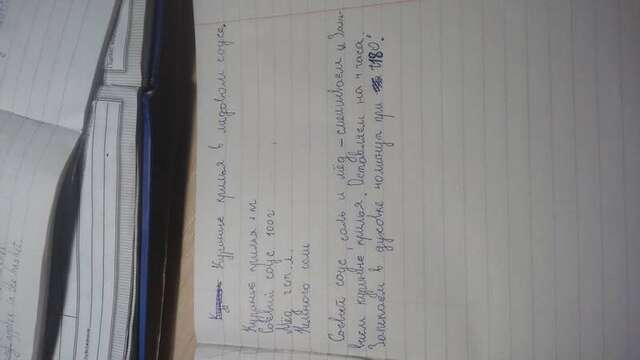 apples in the market.
Куриные крылья в медовом соусе.
Куриные крылья 1 кг
Соевый соус 100 г
Мёд 2 ст. л.
Немного соли
Соевый соус, соль и мёд – смешиваем и зали-
ваем куриные крылья. Оставляем на 4 часа.
Запекаем в духовке 40 минут при 180°